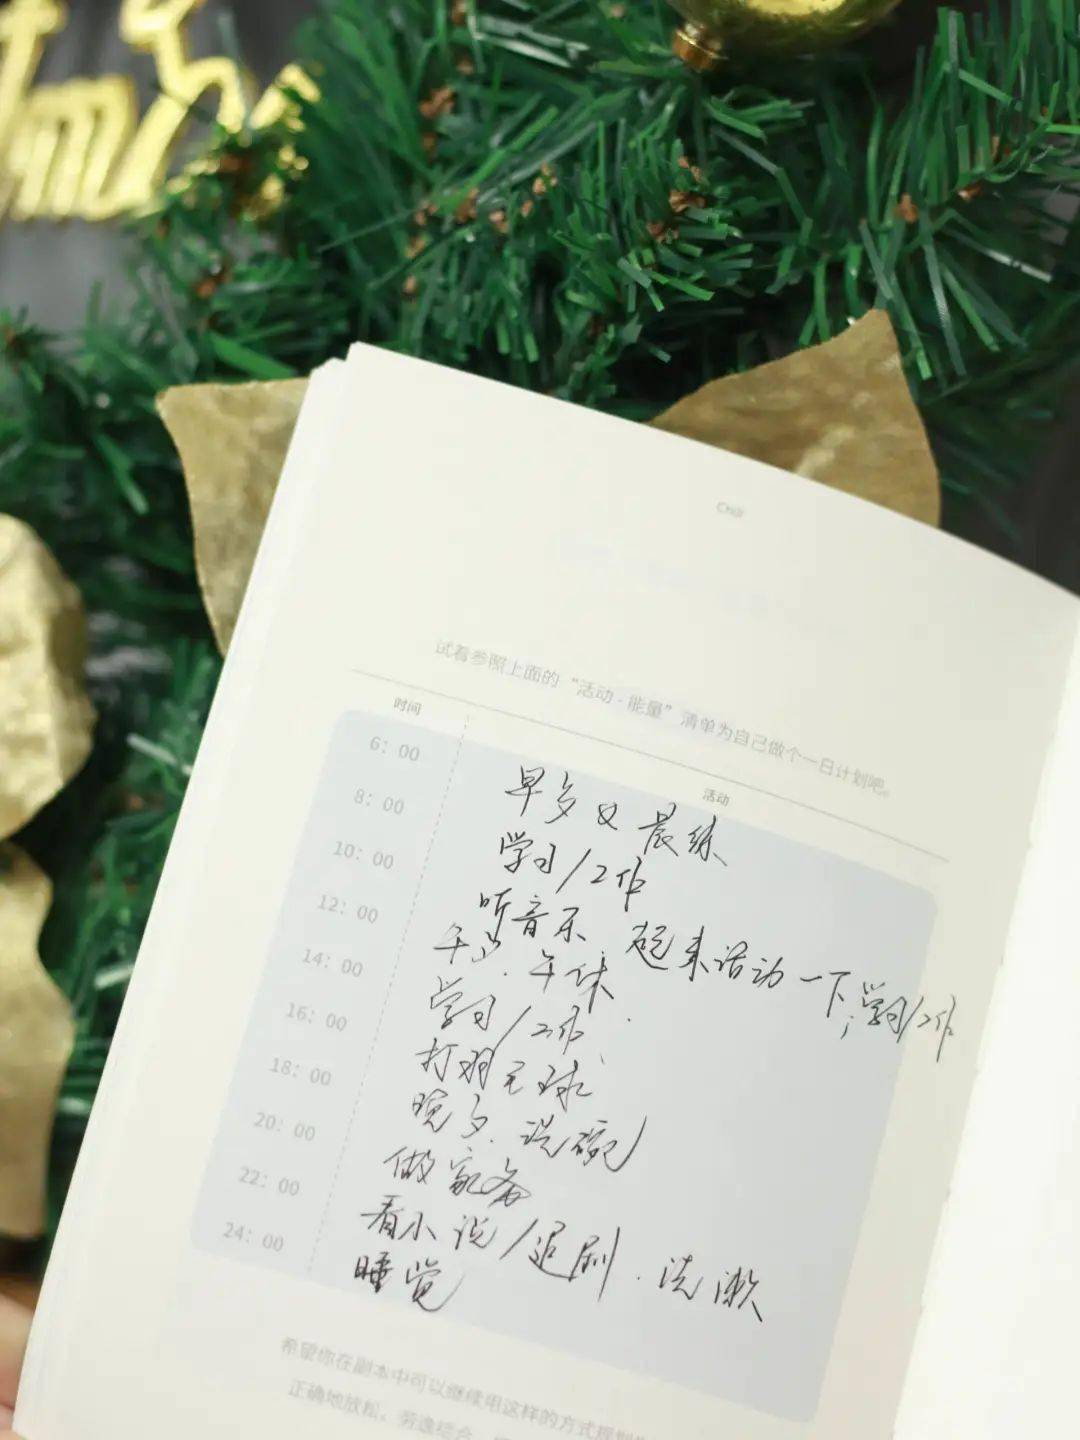 Chill
试着参照上面的“活动·能量”清单为自己做个一日计划吧。
时间 活动
6：00 早 晨练
8：00 学习/工作
10：00 听音乐 起来活动一下；学习/工作
12：00 午 午休
14：00 学习/工作
16：00 打羽毛球
18：00 晚 洗碗
20：00 做家务
22：00 看小说/追剧 洗漱
24：00 睡觉
希望你在副本中可以继续用这样的方式规划
正确地放松，劳逸结合